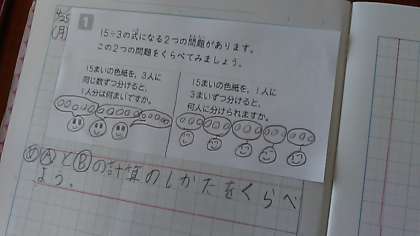 4/25
(月)
1
15÷3の式になる2つの問題があります。
この2つの問題をくらべてみましょう。
15まいの色紙を、3人に
同じ数ずつ分けると、
1人分は何まいですか。
15まいの色紙を、1人に
3まいずつ分けると、
何人に分けられますか。
め AとBの計算のしかたをくらべ
よう。